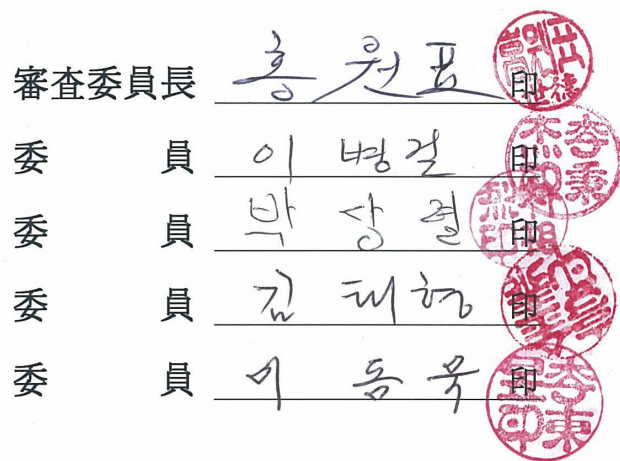 審査委員長 홍원표 印
委 員 이병걸 印
委 員 박상렬 印
委 員 김태형 印
委 員 이동욱 印